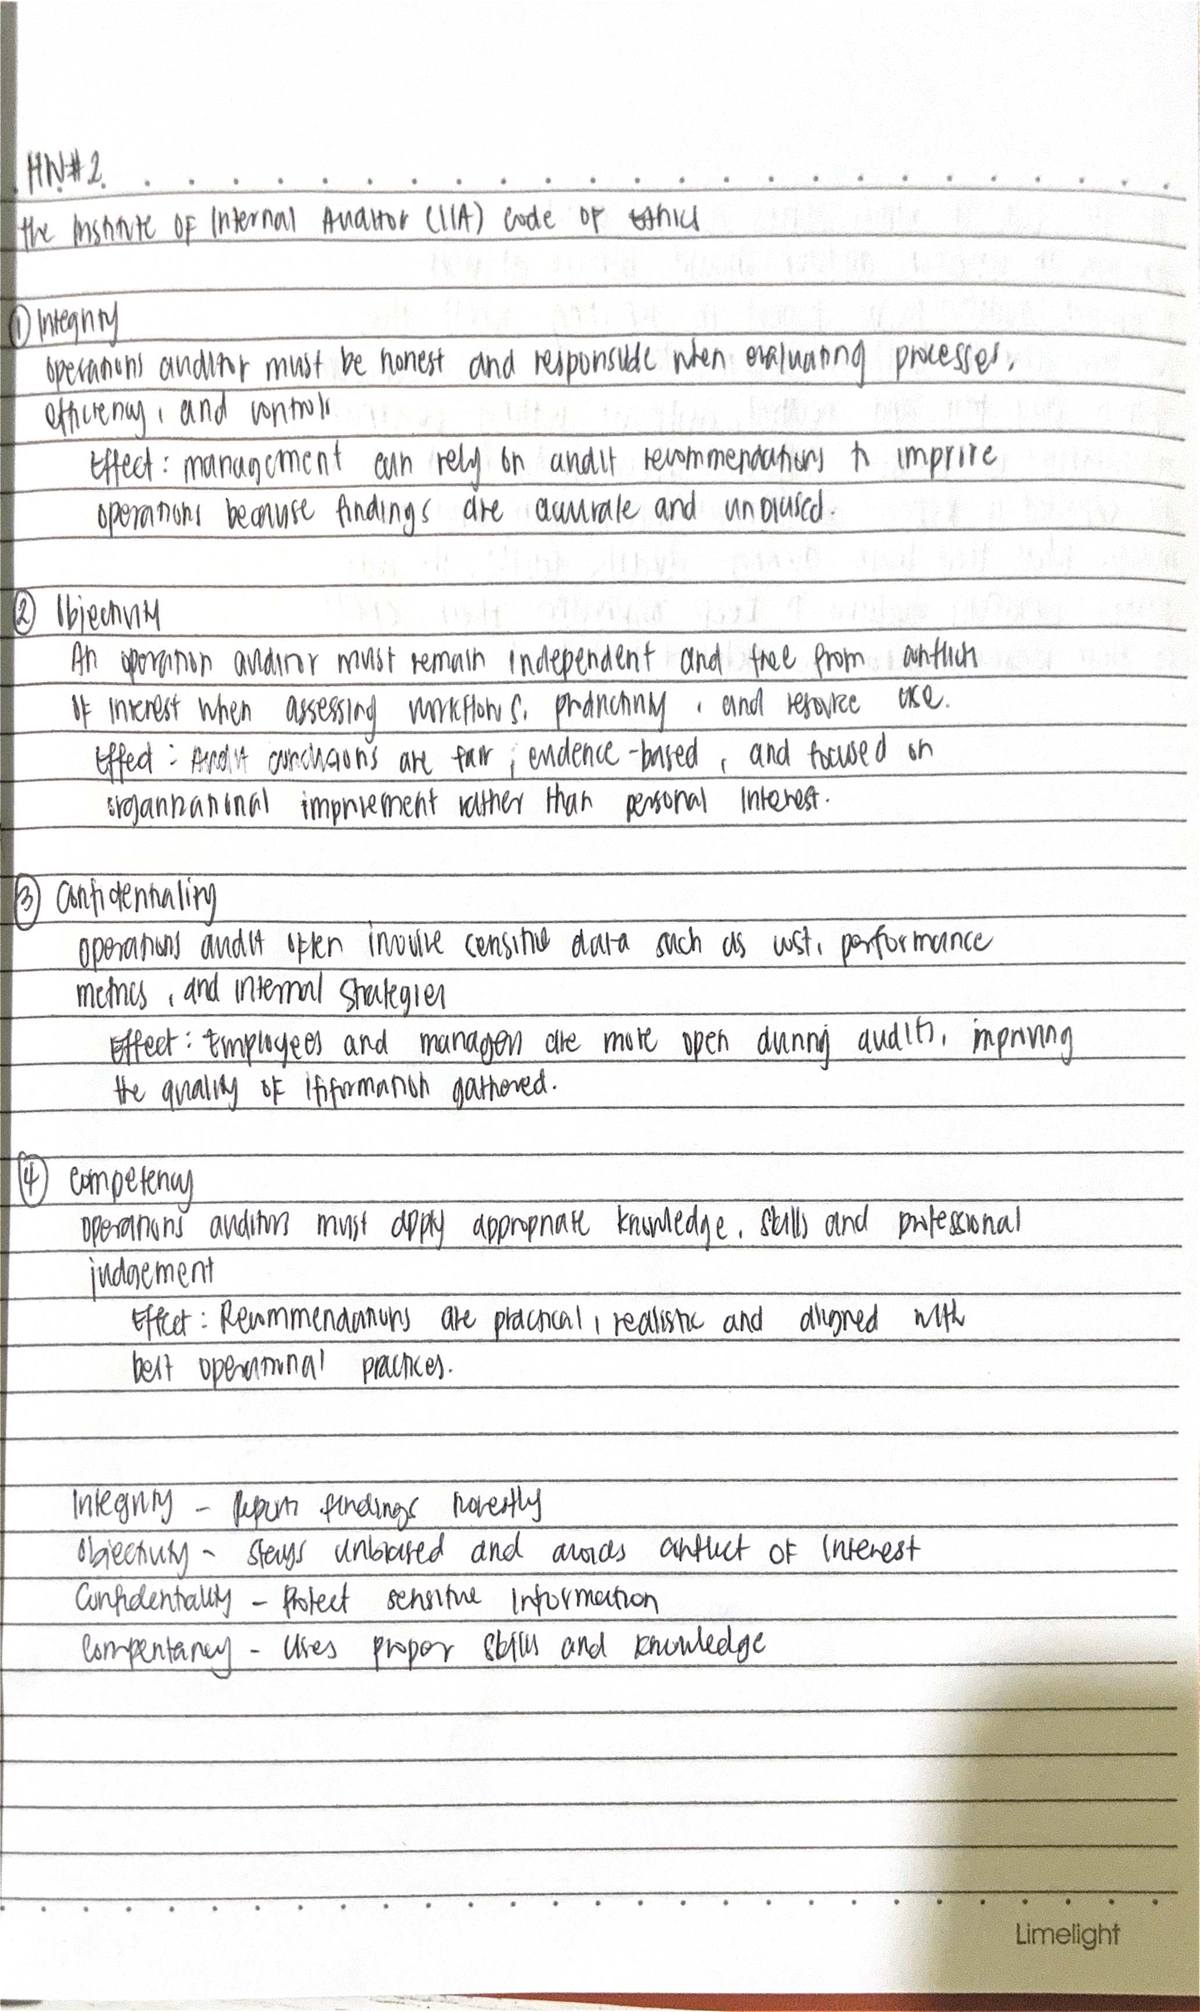 HW#2
the Institute of Internal Auditor (IIA) Code of Ethics
① Integrity
Operations auditor must be honest and responsible when evaluating processes,
efficiency, and controls
Effect: management can rely on audit recommendations to improve
operations because findings are accurate and unbiased.
② Objectivity
An operation auditor must remain independent and free from conflicts
of interest when assessing workflows, , and resource use.
Effect: Audit conclusions are fair, evidence-based, and focused on
organizational improvement rather than personal interest.
③ Confidentiality
Operations audit often involve censitive data such as cost, performance
metrics, and internal strategies
Effect: Employees and managers are more open during audits, improving
the quality of information gathered.
④ Competency
Operations auditors must apply appropriate knowledge, skills and professional
judgement
Effect: Recommendations are practical, realistic and aligned with
best operational practices.
Integrity - Reports findings honestly
Objectivity - stays unbiased and avoids conflict of interest
Confidentiality - Protect sensitive information
Compentancy - Uses proper skills and knowledge
Limelight